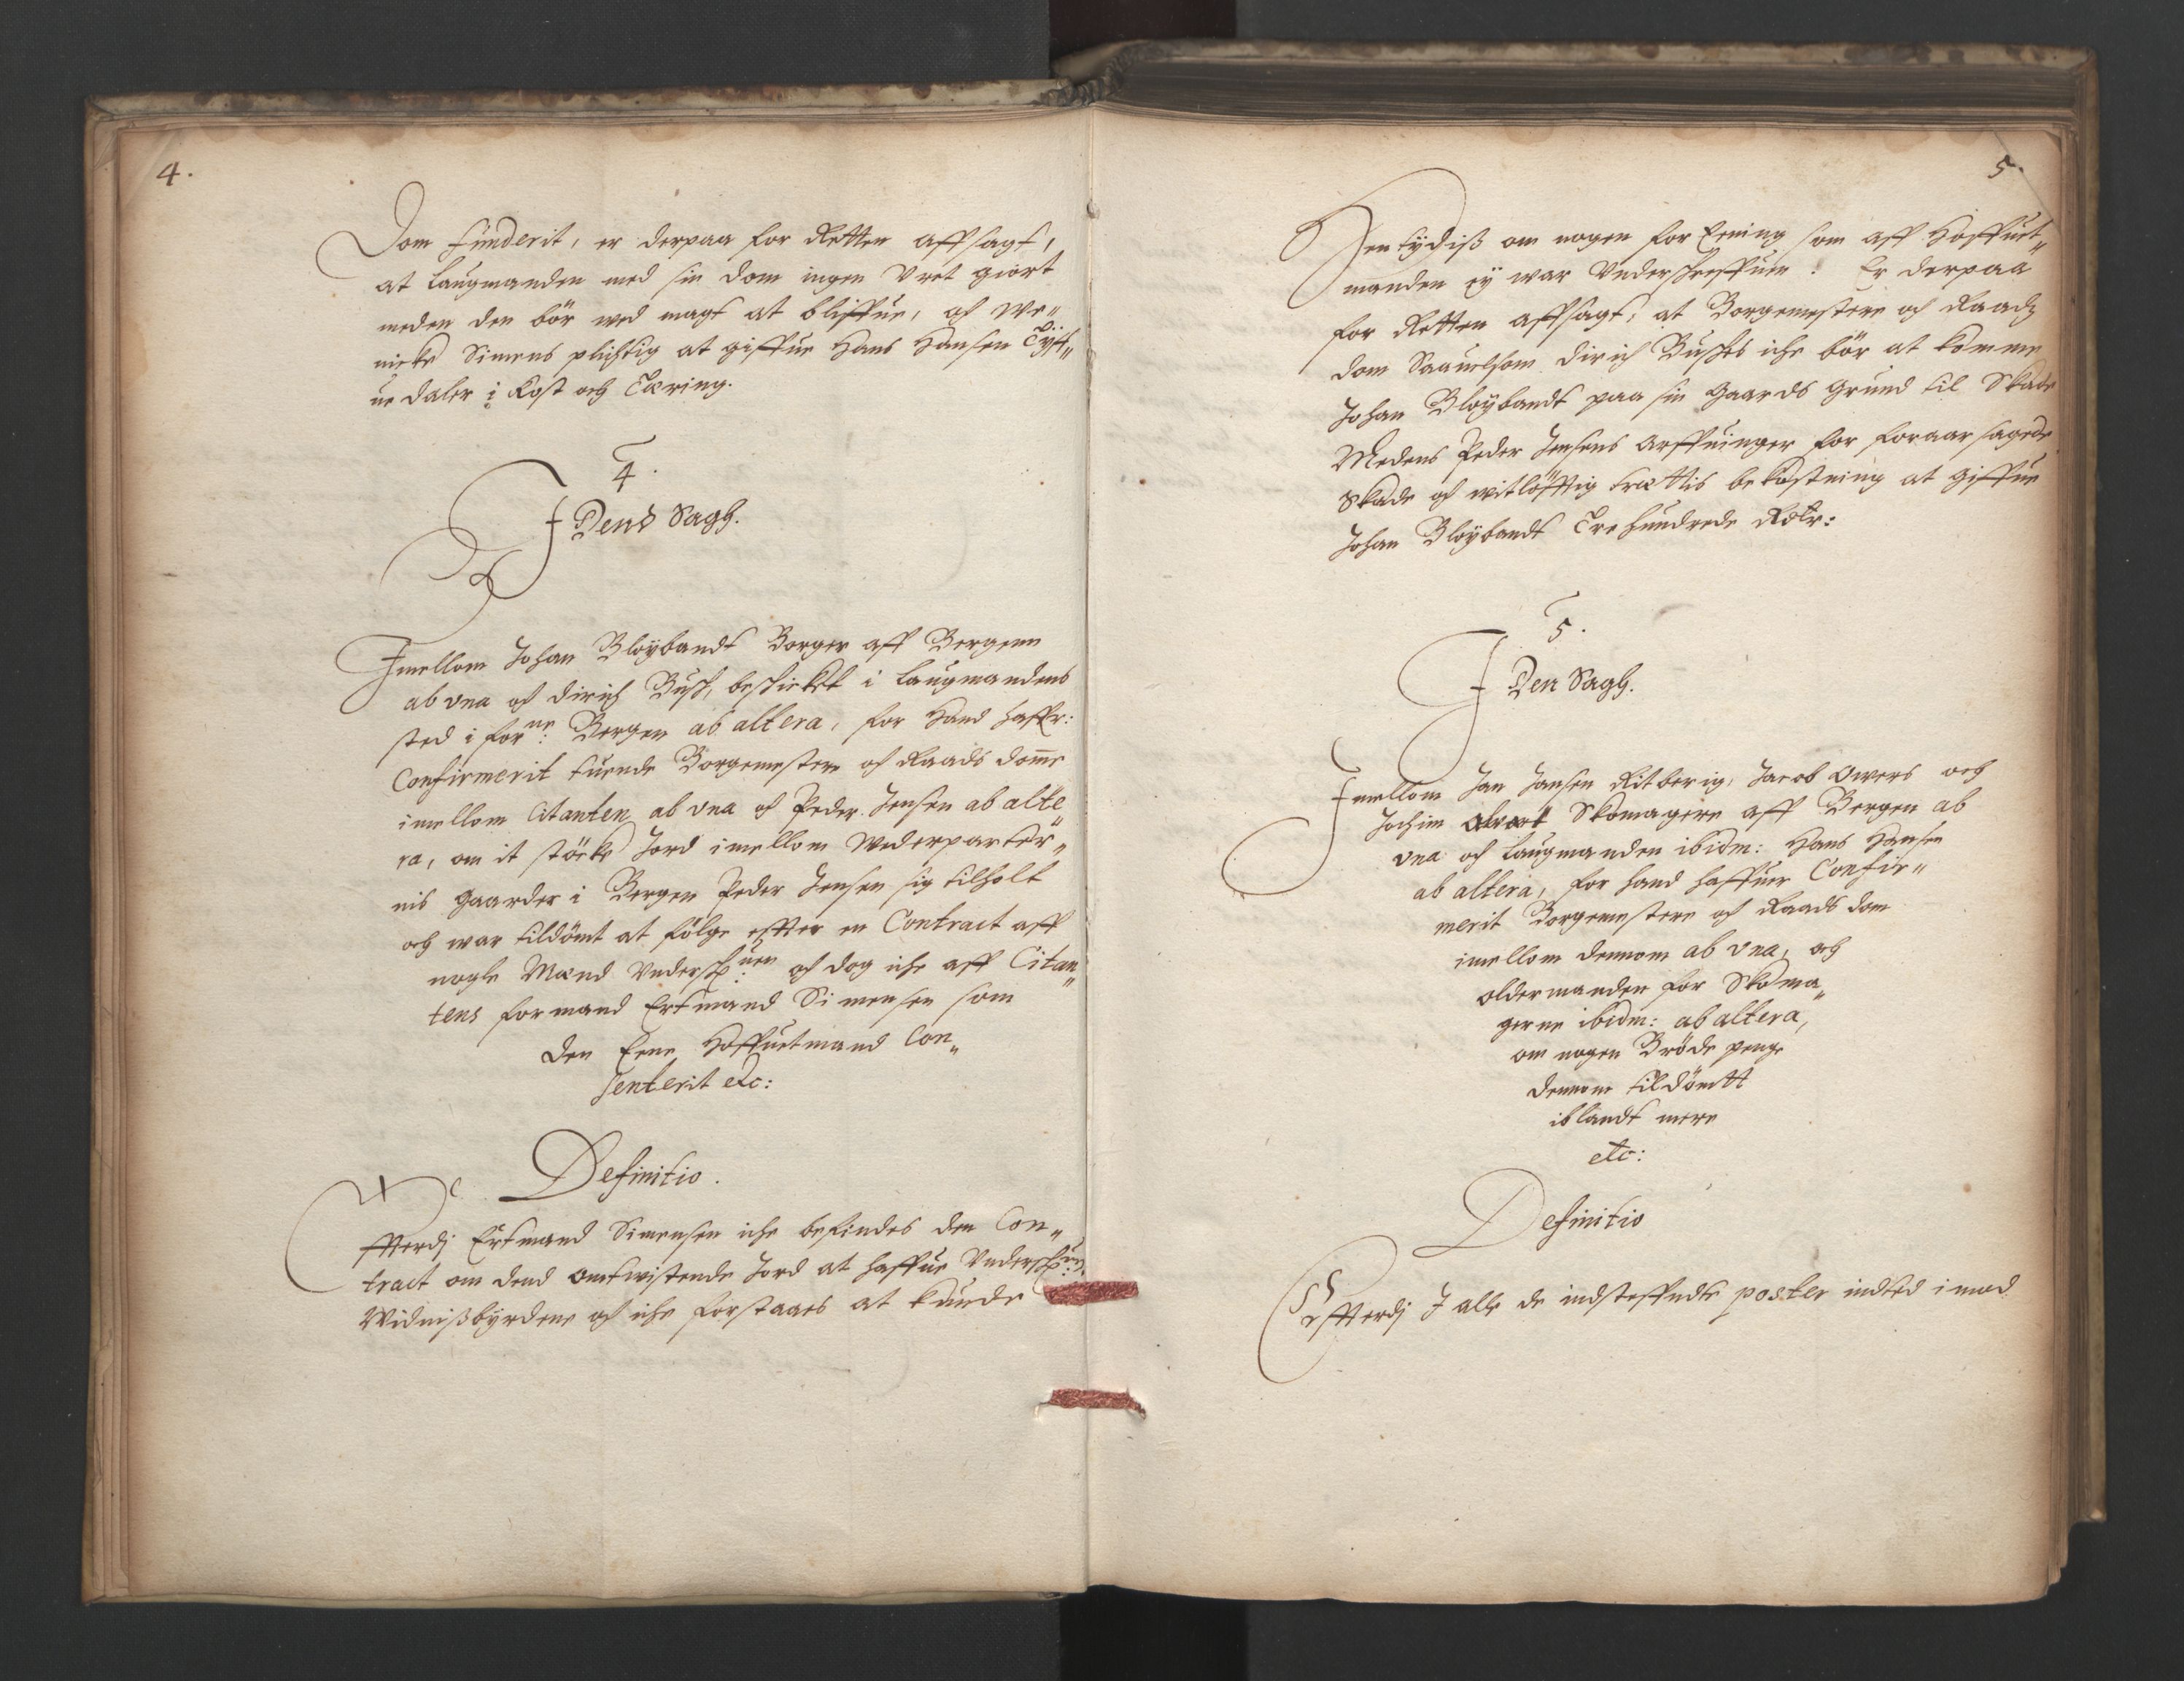 4.
Dom funderit, er derpaa for Retten affsagt,
at Laugmanden med sin dom ingen Vret giort
meden den bör ved magt at bliffue, och We„
nicke Simens plichtig at giffue Hans Hansen Tyf„
ue daler i Kost och Tæring.
4.
J Dend Sagh.
Jmellom Johan Bloÿbandt Borger aff Bergenn
ab vna och dirich Busch, beschicket i Laugmandens
sted i forne: Bergen ab altera, for Hand haffr:
Confirmerit tuende Borgemestere och Raads domme
imellom Citanten ab vna och Peder Jensen ab alte„
ra, om it störcke Jord imellom Wederparter„
nis Gaarder i Bergen Peder Jensen sig tilholt
och war tildömt at fölge effter en Contract aff
nogle Mænd Vndersch:uen och dog iche aff Citan„
tens formand Ertmand Simensen som
den Eene Hoffuetmand Con„
senterit etc:
Definitio.
Effterdj Ertmand Simensen iche befindes den Con„
tract om dend omtwistende Jord at haffue Vnderschr:
Widnißbyrdene och iche forstaaes at kunde
5.
Hentÿdiß om nogen for Eening som aff Hoffuet„
manden eÿ war Vnderschreffuen: Er derpaa
for Retten affsagt, at Borgemestere och Raadz
dom Saauelsom dirich Busches iche bör at komme
Johan Bloÿbandt paa sin Gaards Grund til Skade
Medens Peder Jensens Arffuinger for foraarsagede
Skade och witlöfftig trættis bekostning at giffue
Johan Bloÿbandt Tre hundrede Rdlr:
5.
J Den Sagh.
Jmellom Jan Jansen Ritberig, Jacob Owers och
Jochim Alvart Skomagere aff Bergen ab
vna och Laugmanden ibidm: Hans Hansen
ab altera, for hand haffuer Confir„
merit Borgemestere och Raads dom
imellom dennom ab vna, och
oldermanden for Skoma„
gerne ibidm: ab altera,
om nogen Bröde penge
dennom tildömtt
iblandt mere
etc:
Definitio
Effterdj J alle de indsteffnde poster indted imod